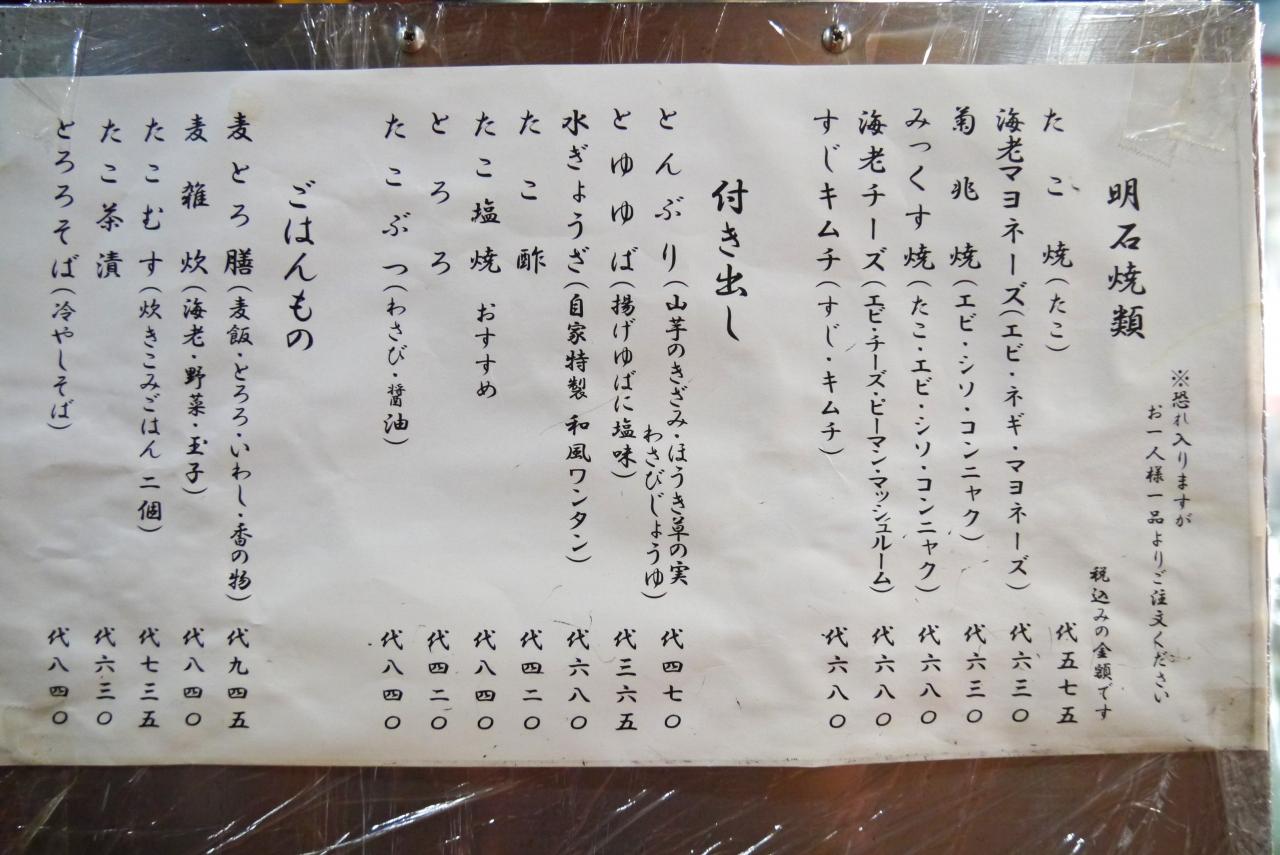 ※恐れ入りますが
お一人様一品よりご注文ください
明石焼類
税込みの金額です
たこ焼(たこ) 代五七五
海老マヨネーズ(エビ・ネギ・マヨネーズ) 代六三〇
菊兆焼(エビ・シソ・コンニャク) 代六三〇
みっくす焼(たこ・エビ・シソ・コンニャク) 代六八〇
海老チーズ(エビ・チーズ・ピーマン・マッシュルーム) 代六八〇
すじキムチ(すじ・キムチ) 代六八〇
付き出し
とんぶり(山芋のきざみ・ほうき草の実
わさびじょうゆ) 代四七〇
とゆゆば(揚げゆばに塩味) 代三六五
水ぎょうざ(自家特製 和風ワンタン) 代六八〇
たこ酢 代四二〇
たこ塩焼 おすすめ 代八四〇
とろろ 代四二〇
たこぶつ(わさび・醤油) 代八四〇
ごはんもの
麦とろ膳(麦飯・とろろ・いわし・香の物) 代九四五
麦雑炊(海老・野菜・玉子) 代八四〇
たこむす(炊きこみごはん 二個) 代七三五
たこ茶漬 代六三〇
とろろそば(冷やしそば) 代八四〇